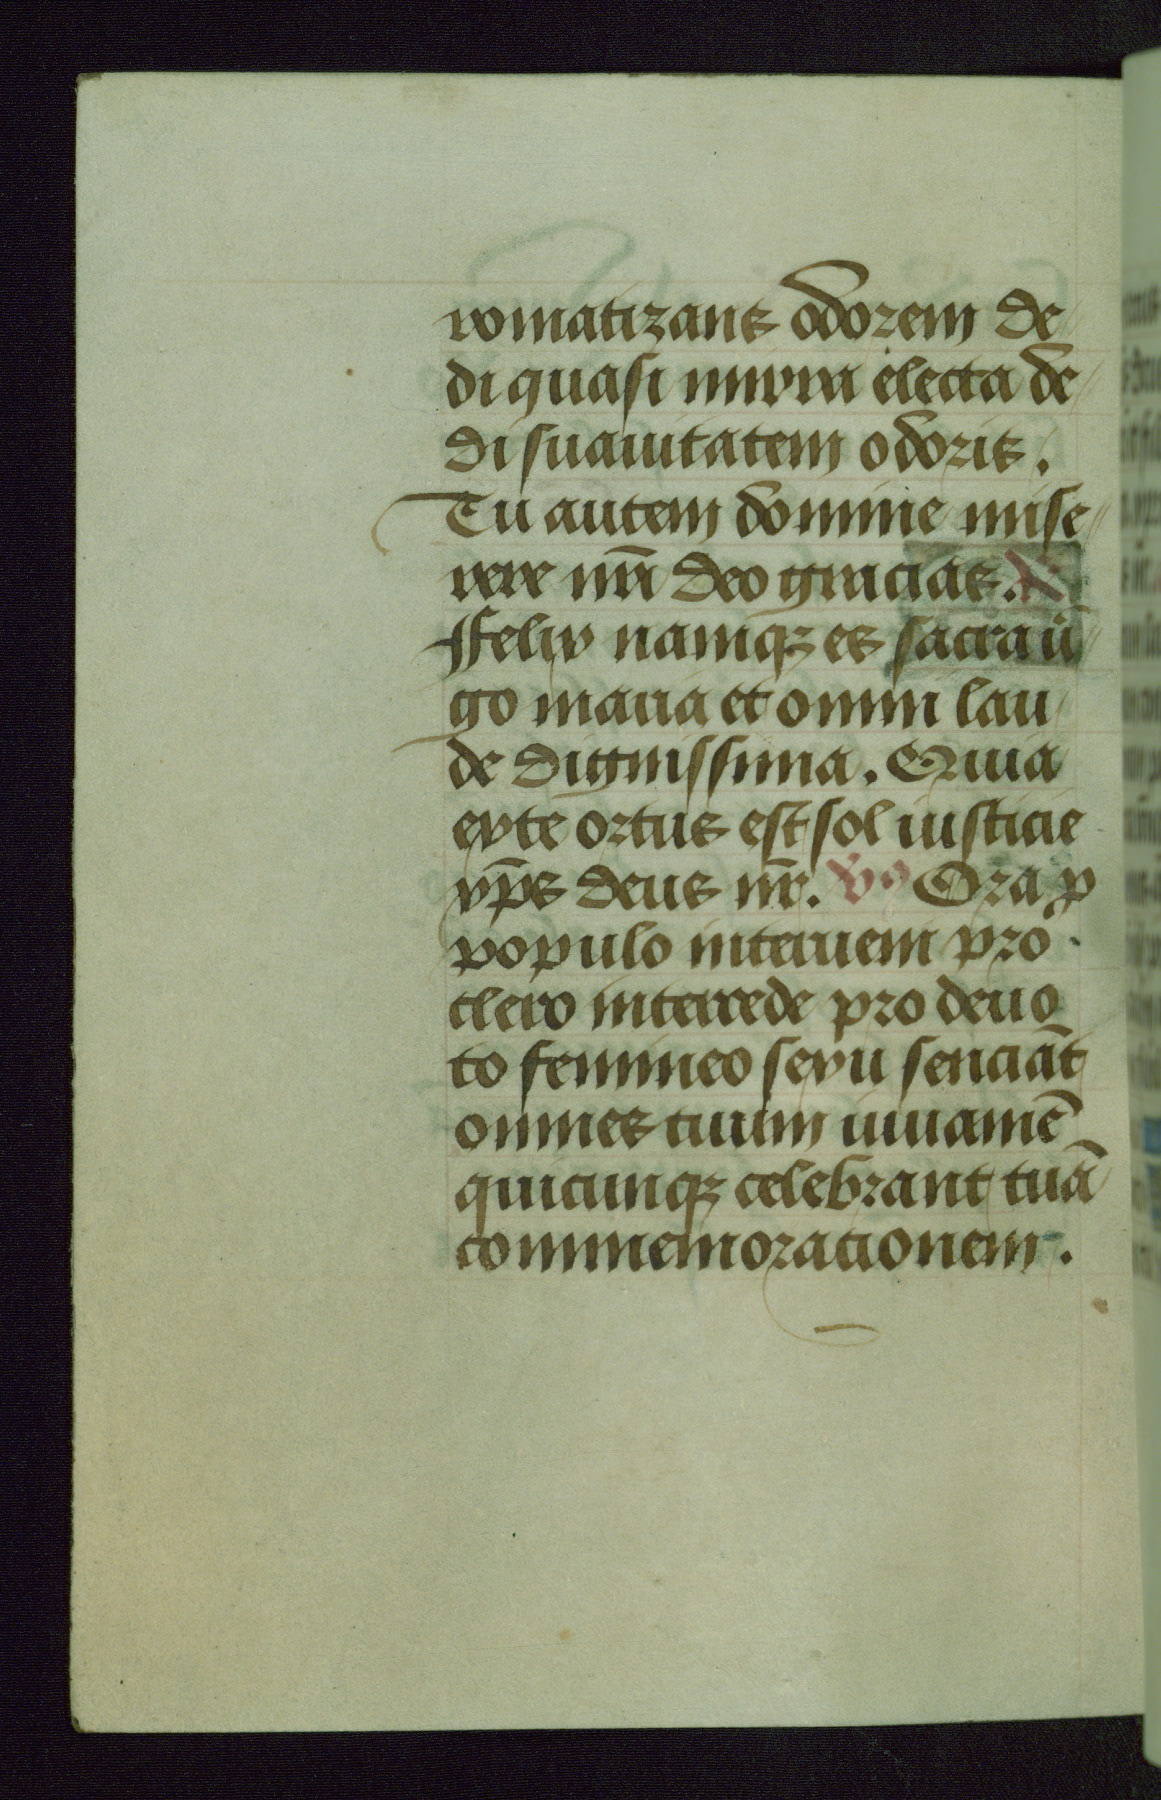 romatizans odorem de
di quasi mirra electa de
di suauitatem odoris.
Tu autem domine mise
rere nr̄i deo gracias. R
Felix namqz es sacra ū
go maria et omni lau
de dignissima. Quia
exte ortus est sol iusticie
xp̄s deus nr̄. vs Ora p
populo interueni pro
clero intercede pro deuo
to femineo sexu senciāt
omnes tuum iuuamē
quicunqz celebrant tuā
commemoracionem.